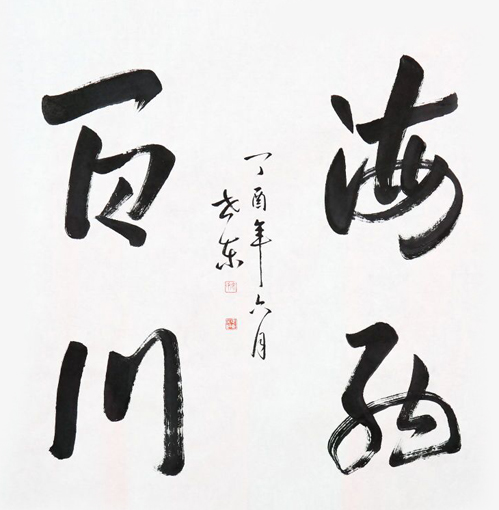 海纳
百川
丁酉年六月
东